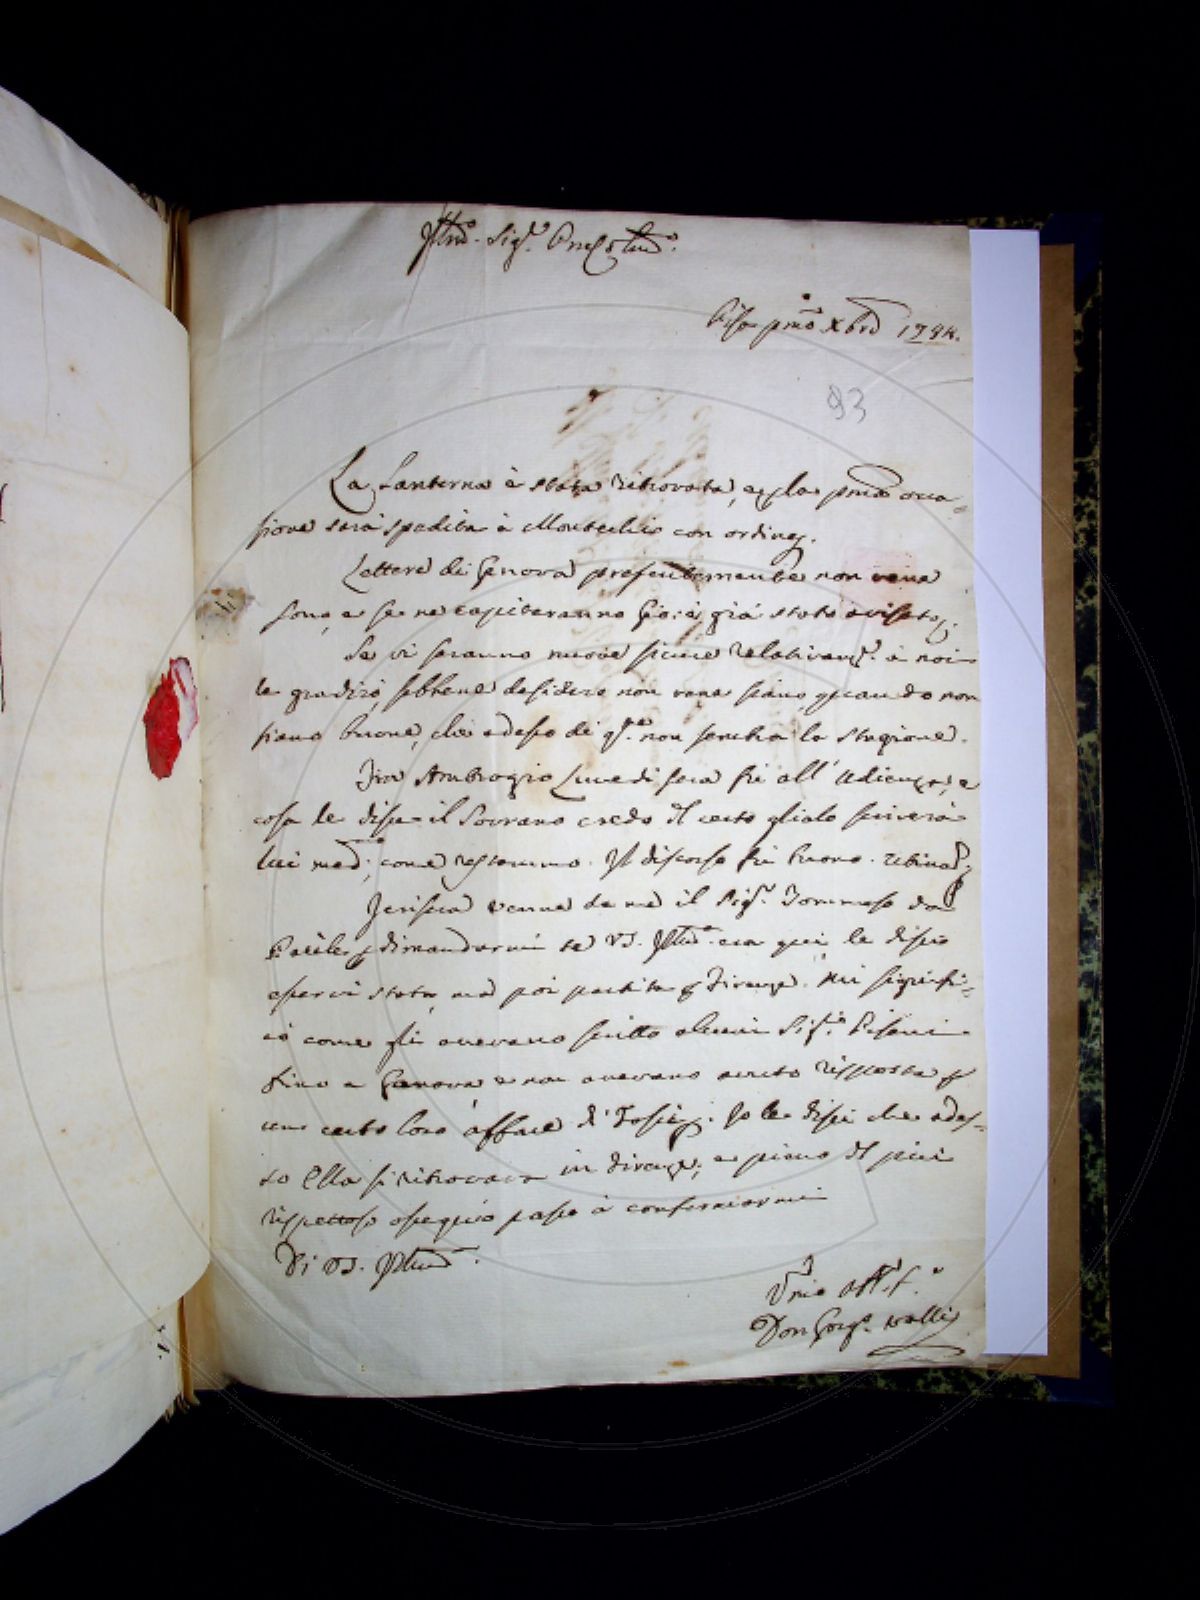 Illmo. Sig.e Pne Colmo.
Pisa pmo Xbre 1794.
93
La Lanterna è stata ritrovata, e pla pma occa-
sione sarà spedita à Montechio con ordine.
Lettere di Genova presentemente non vene
sono, e se ne capiteranno Gio: è già stato avisato.
Se vi saranno nuove sicure relativam.e à noi
le gradirò, sebbene desidero non vene siano quando non
siano buone, che adesso di q.e non sembra la stagione.
Fra Ambrogio Lunedi sera fù all' Udienza, e
cosa le disse il Sovrano credo di certo glielo scriverà
lui med.o, come restammo. Il discorso fù buono.
Jerisera venne da me il Sig.e Tommaso da
dimandarmi se VS. Illma. era qui, le dissi
esservi stata, mà poi partita p Firenze. Mi signifi-
cò come gli avevano scritto alcuni Sig.i Pisani
fino a Genova, e non avevano avuto risposta p
un certo loro affare di. Io le dissi che ades-
so Ella si ritrovava in Firenze; e pieno di più
rispettoso ossequio passo à confermarmi
Di VS. Illma.
Don Gorg.o